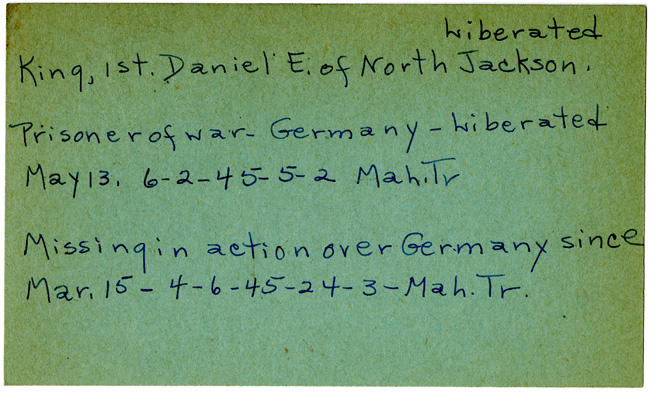 Liberated
King, 1st. Daniel E. of North Jackson.
Prisoner of war - Germany - Liberated
May 13. 6-2-45-5-2 Mah. Tr
Missing in action over Germany since
Mar. 15 - 4-6-45-24-3-Mah. Tr.